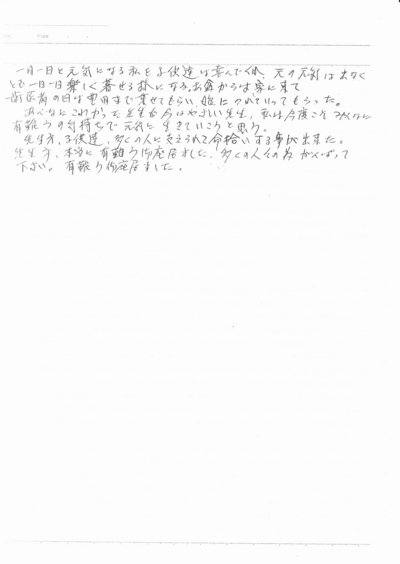 一日一日と元気になる私を子供達は喜んでくれ、元の元気は出なく
とも一日一日楽しく暮せる様になり、お倉からは家に来て
歯医者の日は車まで乗せてもらい、娘につれていってもらった。
あんなにこわかった先生も今はやさしい先生、私は今度こそみんなに
有難うの気持ちで元気に生きていこうと思う。
先生方、子供達、多くの人に支えられて命拾いする事が出来た。
先生方、本当に有難う御座居ました、多くの人々の為がんばって
下さい。有難う御座居ました。